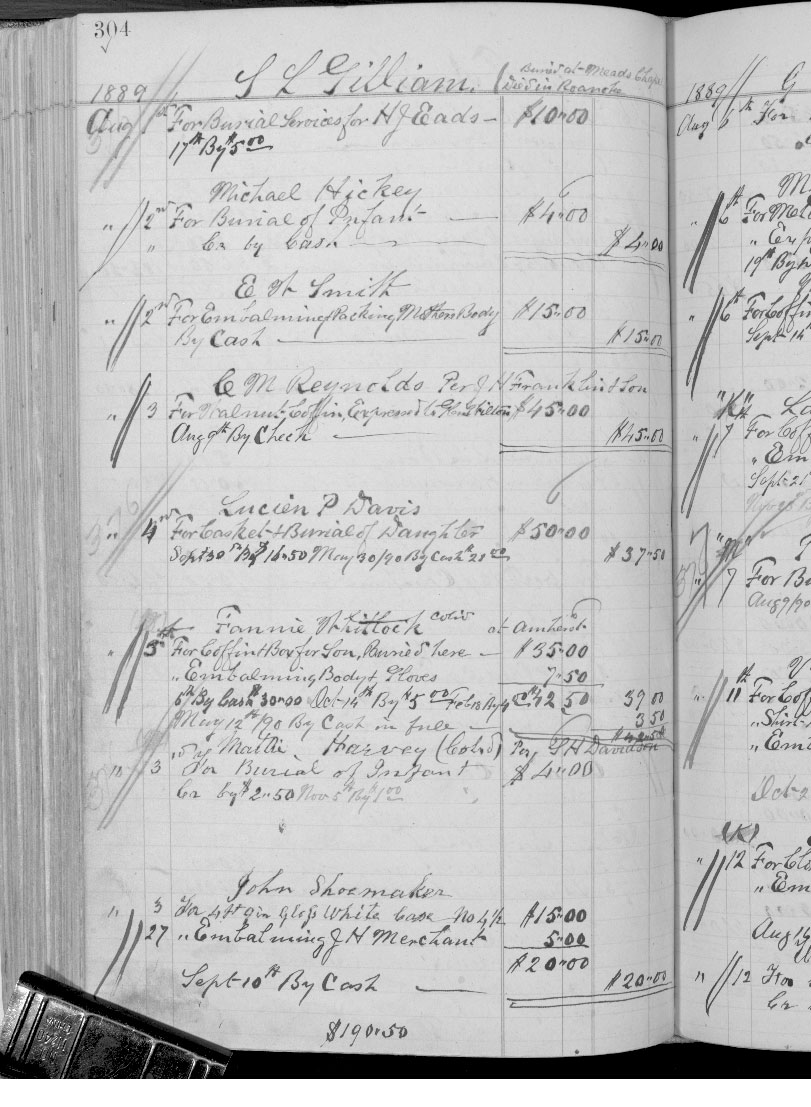 304
1889 S L Gilliam. (Buried at Meads Chapel
Died in Roanoke
Aug 1st For Burial Services for H J Eads – $10.00
17th By $5 00
Michael Hickey
" 2nd For Burial of Infant $4.00
" Cr by Cash $4.00
E W Smith
" 2nd For Embalming & Packing Mothers Body $15.00
By Cash $15.00
C M Reynolds Per J H Franklin & Son
" 3 For Walnut Coffin, Expressed to $45.00
Aug 9th By Check $45.00
Lucien P Davis
" 4th For Casket & Burial of Daughter $50.00
Sept 30th By $14.50 May 30/90 By Cash $23 00 $37.50
Fannie Whitlock Cold at Amherst
" 5th For Coffin & Box for Son, Buried here – $35.00
" Embalming Body & Gloves 7.50
6th By Cash $30.00 Oct 14th By $5 00 Feb 13 By 4 00 $42.50 39 00
May 12th/90 By Cash in full 3 50
$42.50
Mattie Harvey (Colrd) Per, G H Davidson
" 3 For Burial of Infant $4.00
Cr by $2.50 Nov 5th By $1 00
John Shoemaker
" 3 For 4 ft 9 in Gloss White Case No 4½ $15.00
27 " Embalming J H Merchant 5.00
$20.00
Sept 10th By Cash $20.00
$190.50
1889 G
Aug 5th For
M
" 6th For Met
" Exp
19th By
" 6th For Coffin
Sept 14
"K" L
" 7 For Coff
" Em
Sept 21
"M"
" 7 For Bu
Aug 9/90
" 11th For Coff
" Shirt
" Em
Oct 2
(K)
" 12 For Clo
" Em
Aug 19
" 12 For
Cr